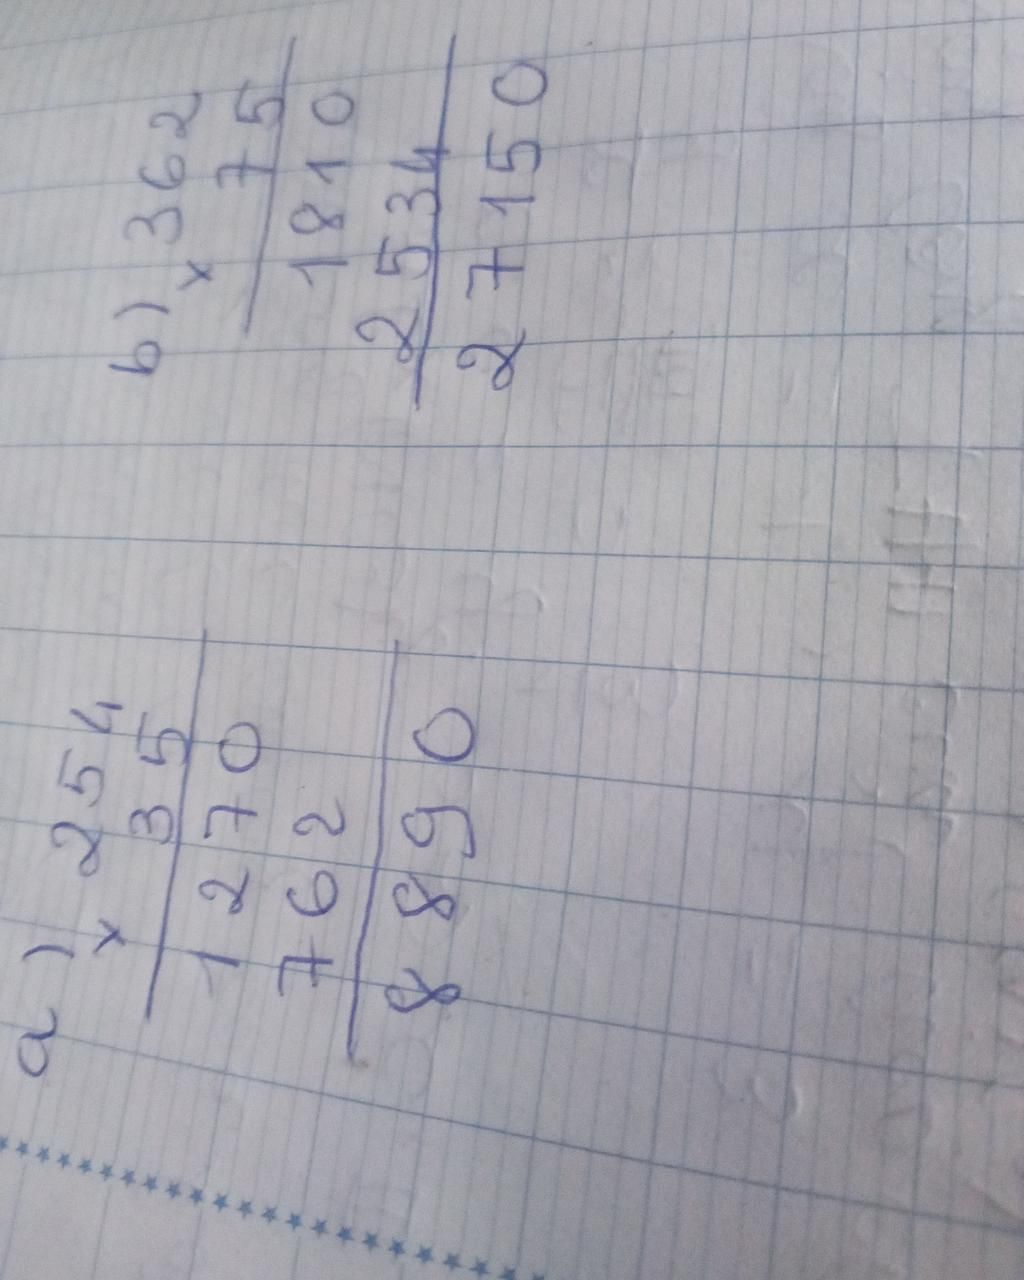 a) 254
× 35
1270
762
8890
b) 362
× 75
1810
2534
27150